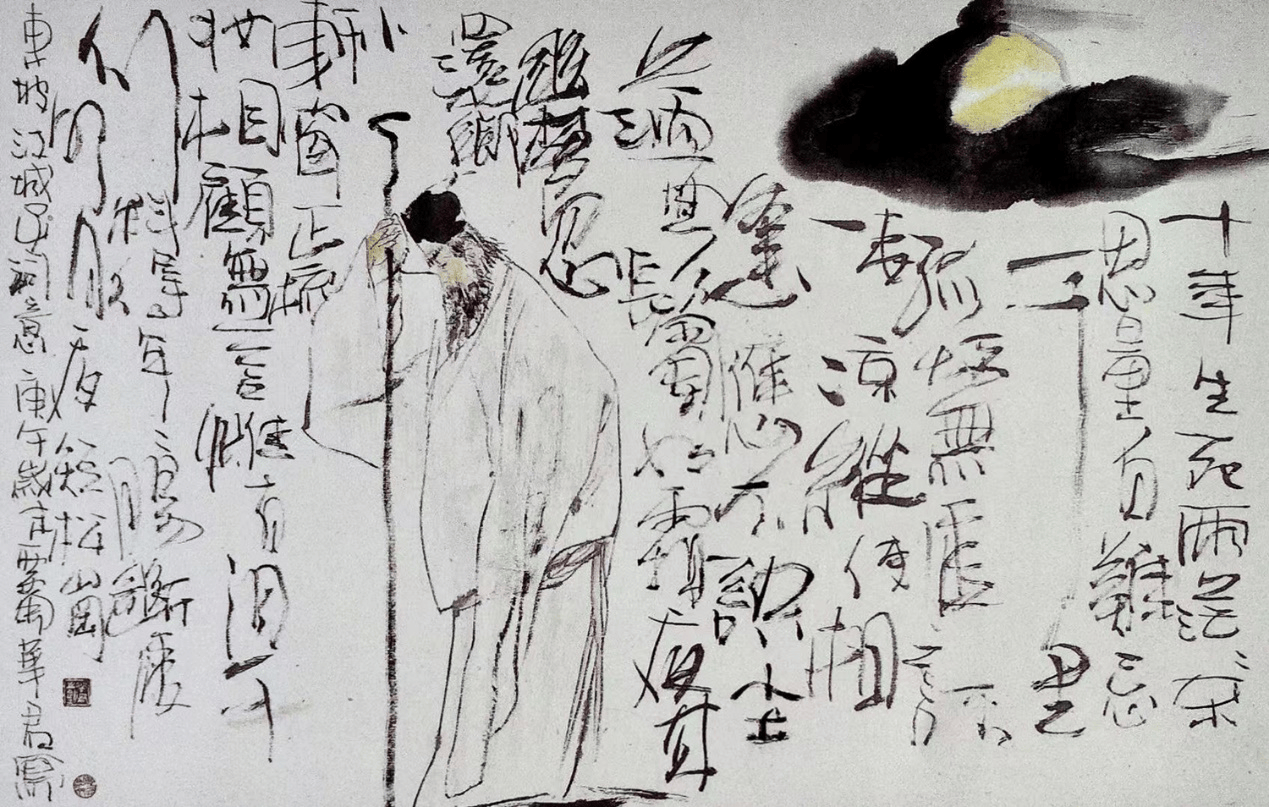 十年生死兩茫〻不
思量自難忘
千里
孤墳無處話
淒涼縱使相
逢應不識塵
滿面鬢如霜夜來
幽夢忽
還鄉
小軒窗正梳
妝相顧無言惟有淚千
行料得年〻腸斷處
明月夜短松岡
東坡江城子詞意庚午歲末